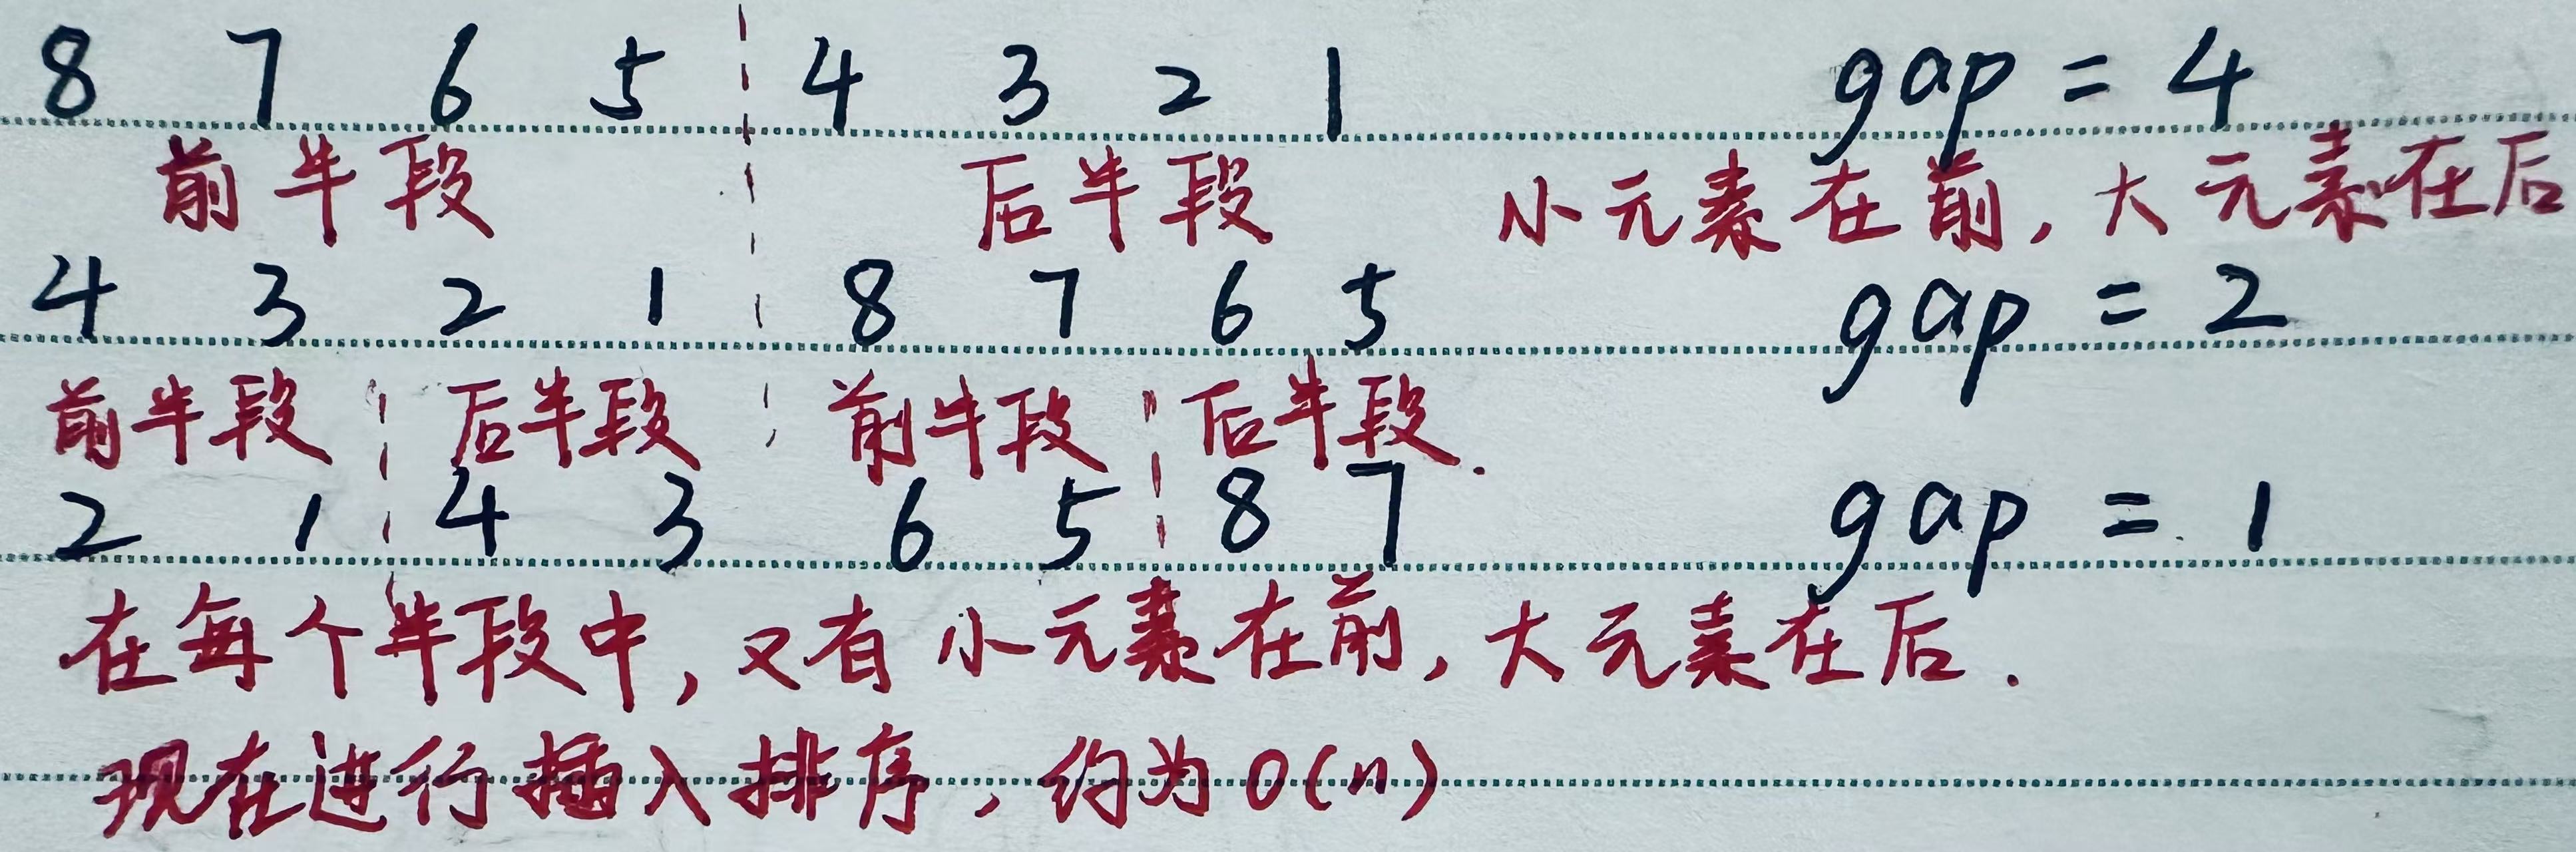 8 7 6 5 4 3 2 1 gap = 4
前半段 后半段 小元素在前,大元素在后
4 3 2 1 8 7 6 5 gap = 2
前半段 后半段 前半段 后半段.
2 1 4 3 6 5 8 7 gap = 1
在每个半段中,又有小元素在前,大元素在后.
现在进行插入排序,约为O(n)